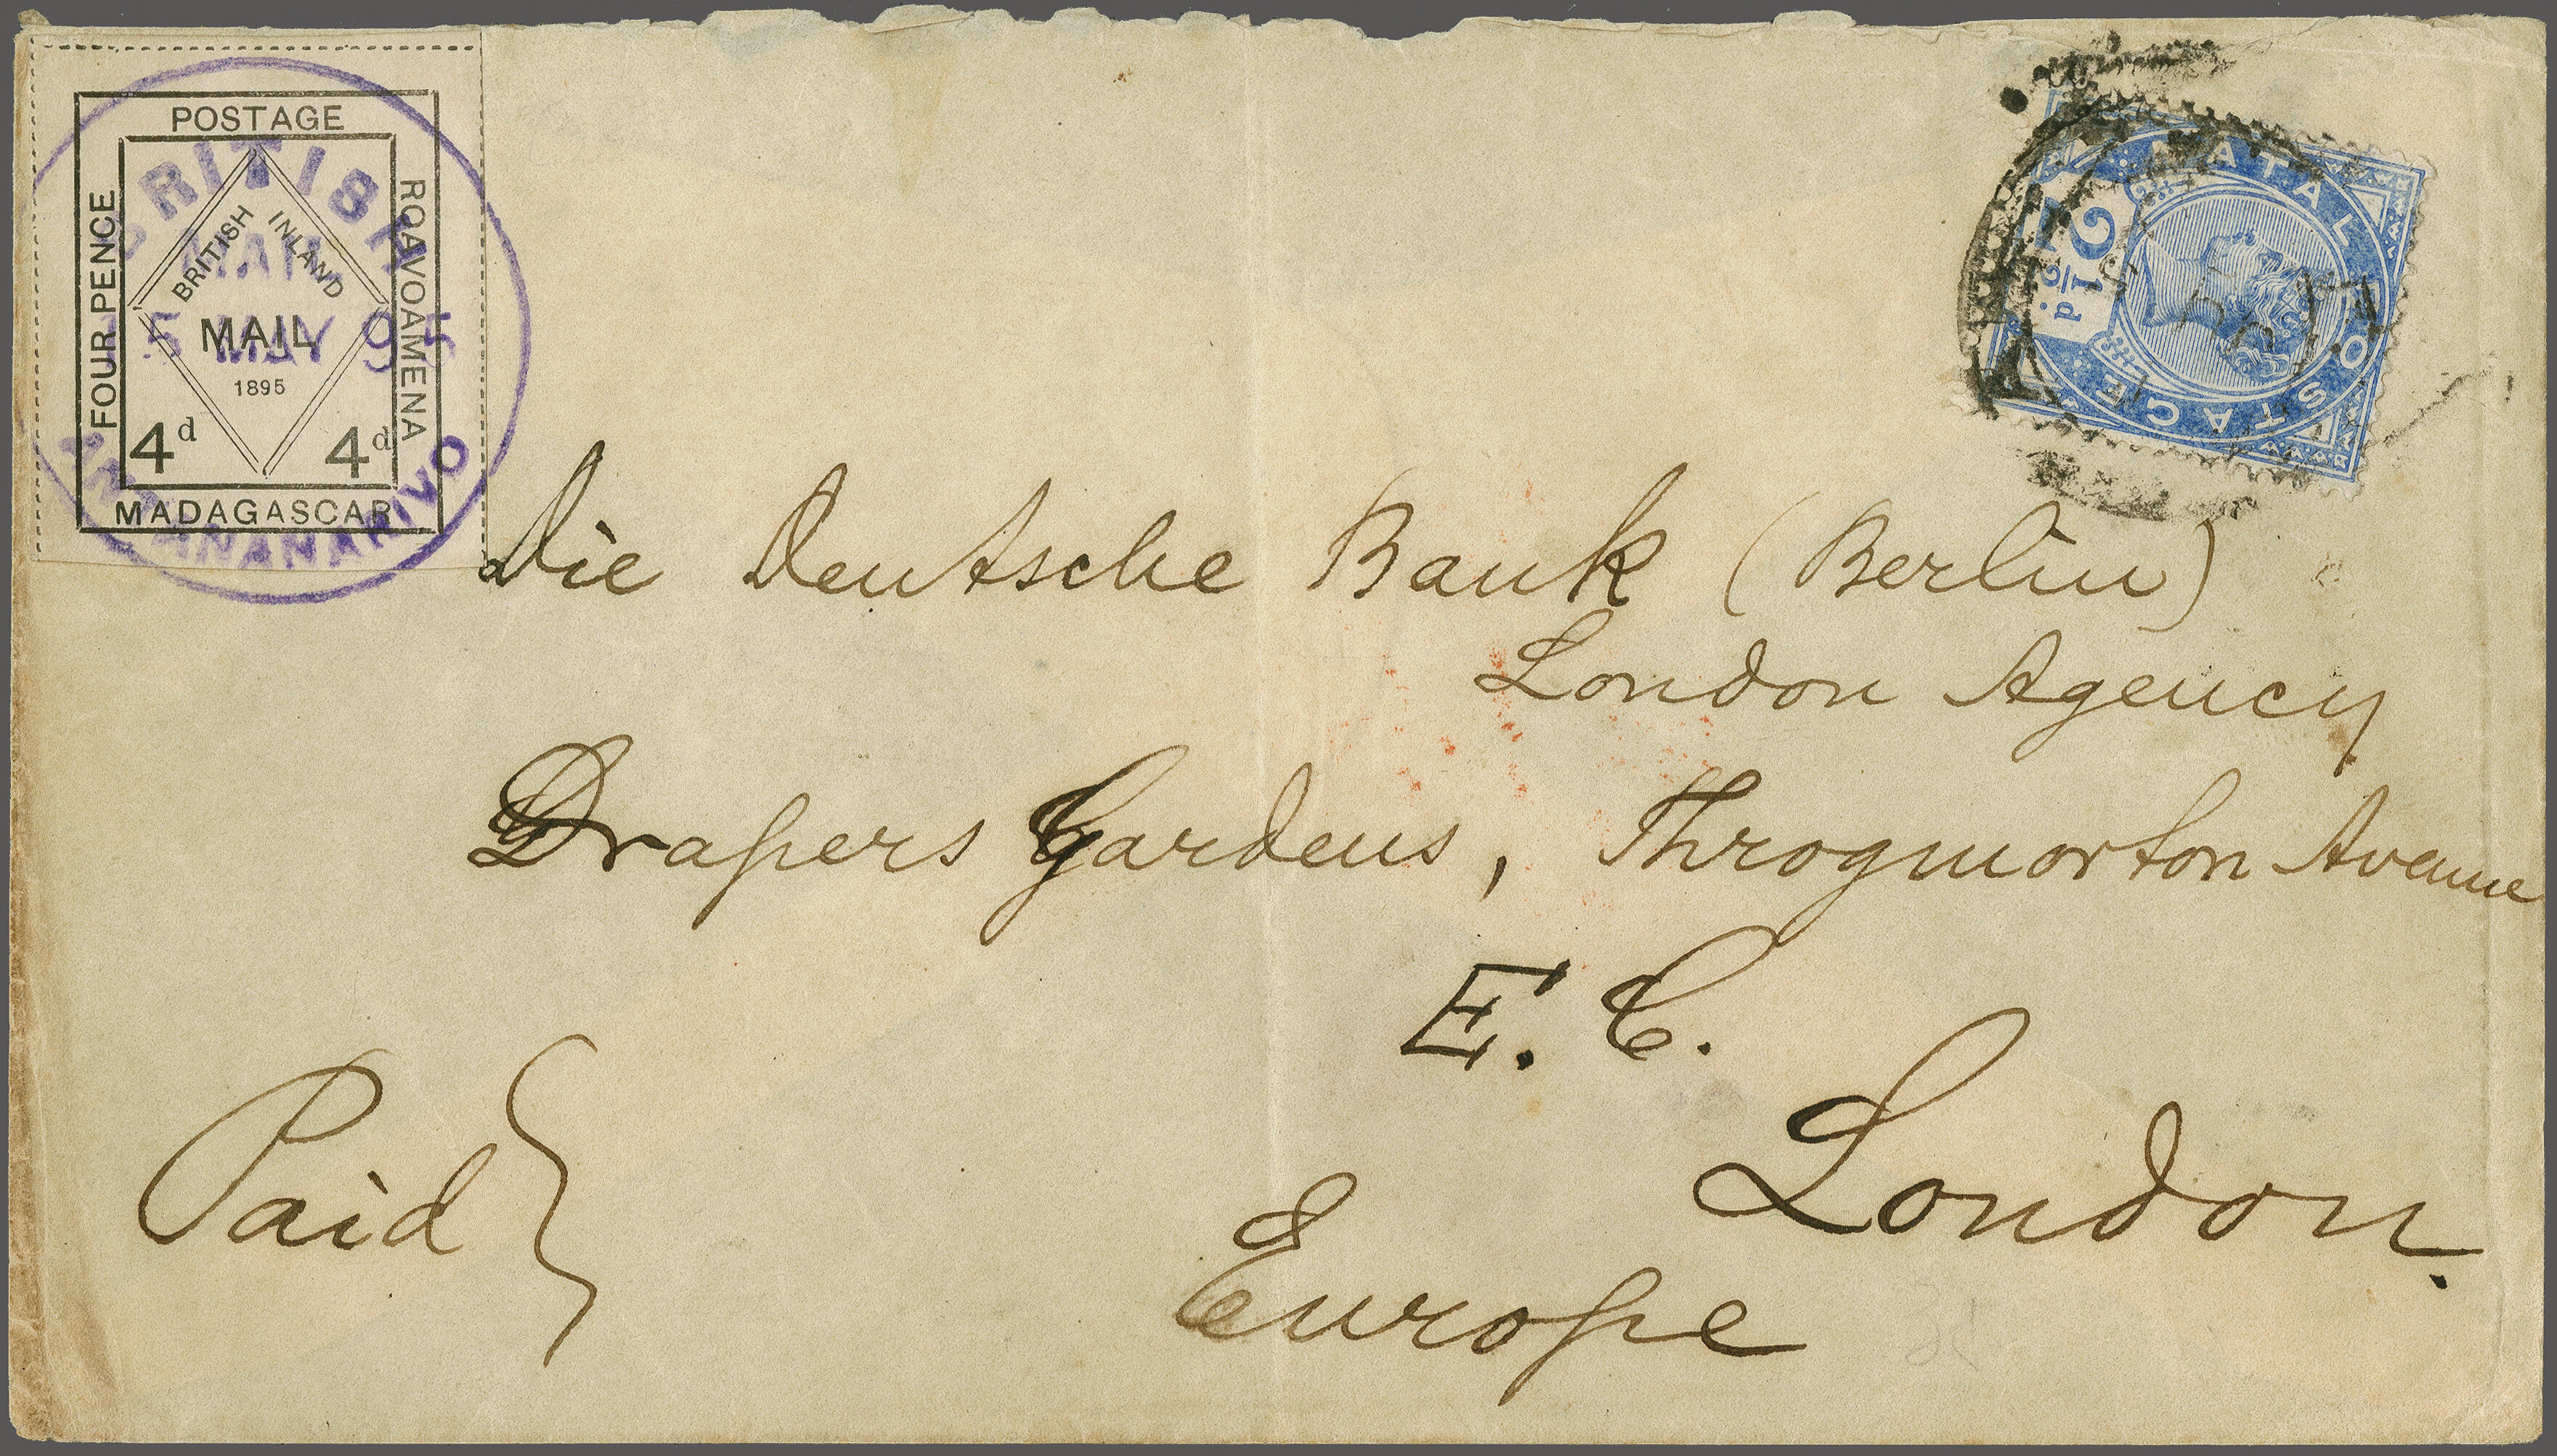 POSTAGE
FOUR PENCE
ROAVOAMENA
BRITISH INLAND
MAIL
1895
4d 4d
MADAGASCAR
BRITISH
MAIL
15 MAY 95
ANTANANARIVO
NATAL
2½d.
POSTAGE
Die Deutsche Bank (Berlin)
London Agency
Drapers Gardens, Throgmorton Avenue
E. C.
London.
Europe
Paid